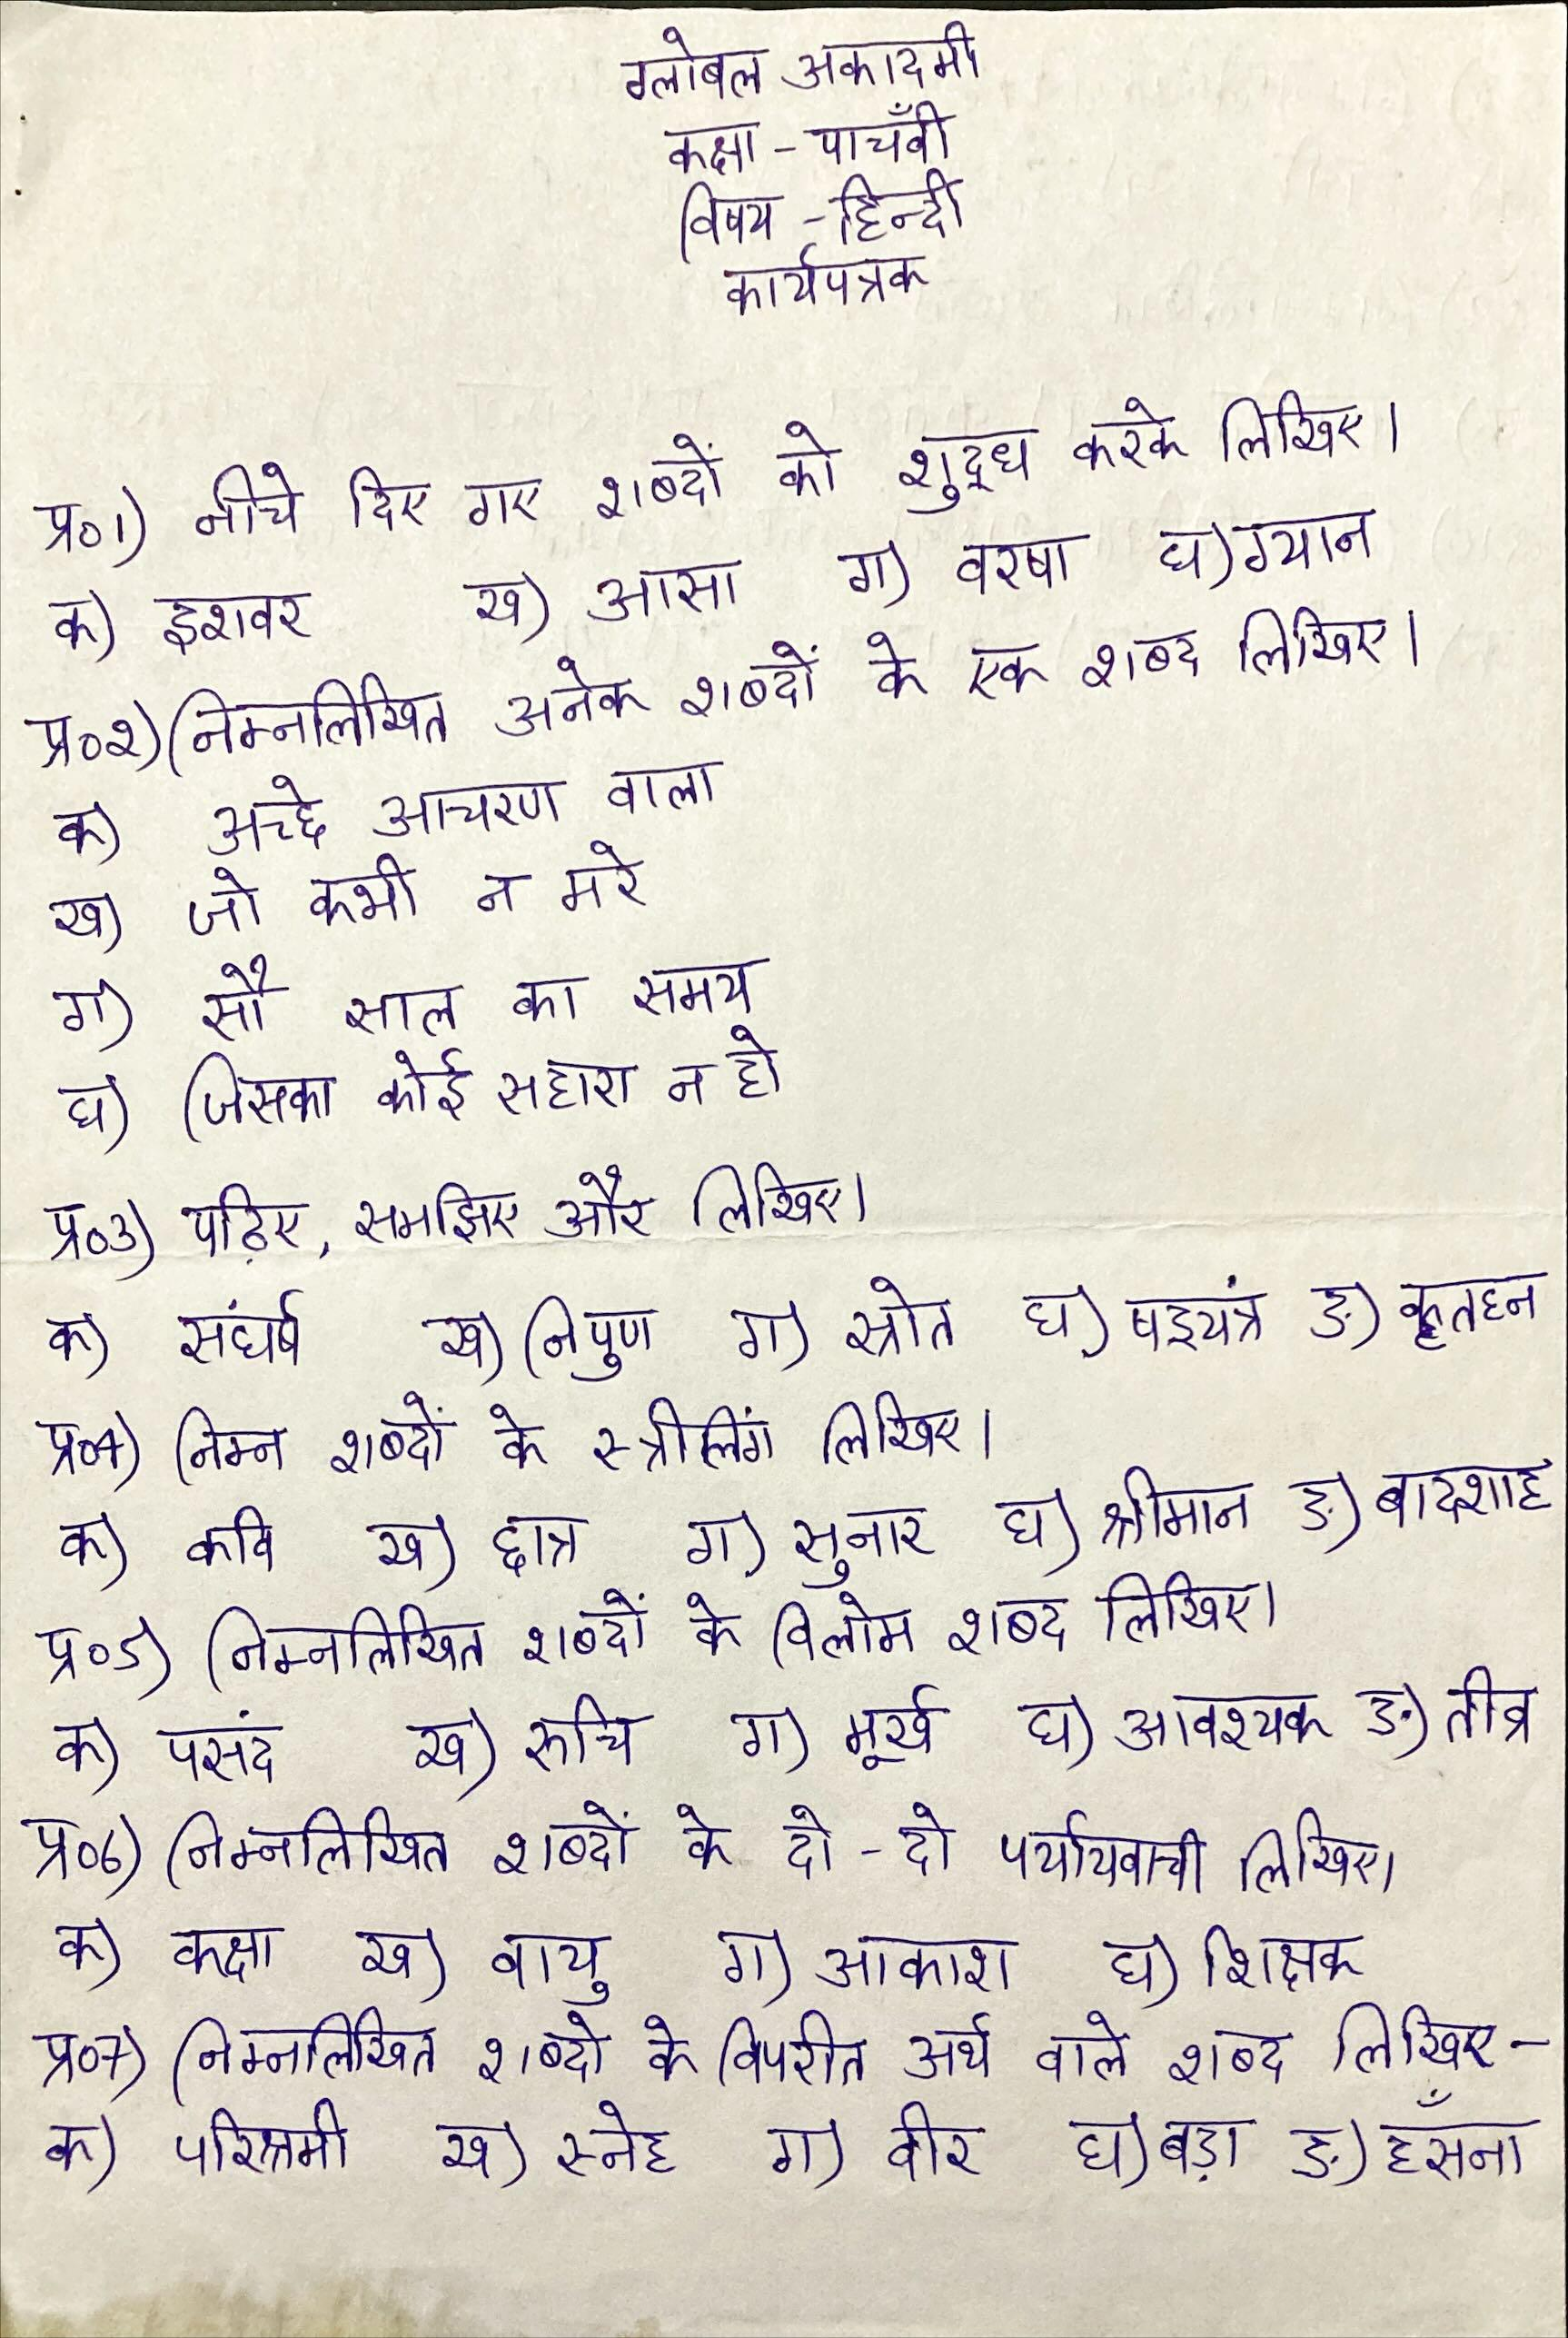 ग्लोबल अकादमी
कक्षा - पाचँवी
विषय - हिन्दी
कार्यपत्रक
प्र०1) नीचे दिए गए शब्दों को शुद्ध करके लिखिए।
क) इशवर ख) आसा ग) वरषा घ) ग्यान
प्र०2) निम्नलिखित अनेक शब्दों के एक शब्द लिखिए।
क) अच्छे आचरण वाला
ख) जो कभी न मरे
ग) सौ साल का समय
घ) जिसका कोई सहारा न हो
प्र०3) पढ़िए, समझिए और लिखिए।
क) संघर्ष ख) निपुण ग) स्रोत घ) षड्यंत्र ङ) कृतघ्न
प्र०4) निम्न शब्दों के स्त्रीलिंग लिखिए।
क) कवि ख) छात्र ग) सुनार घ) श्रीमान ङ) बादशाह
प्र०5) निम्नलिखित शब्दों के विलोम शब्द लिखिए।
क) पसंद ख) रुचि ग) मूर्ख घ) आवश्यक ङ) तीव्र
प्र०6) निम्नलिखित शब्दों के दो - दो पर्यायवाची लिखिए।
क) कक्षा ख) वायु ग) आकाश घ) शिक्षक
प्र०7) निम्नलिखित शब्दो के विपरीत अर्थ वाले शब्द लिखिए -
क) परिश्रमी ख) स्नेह ग) वीर घ) बड़ा ङ) हँसना